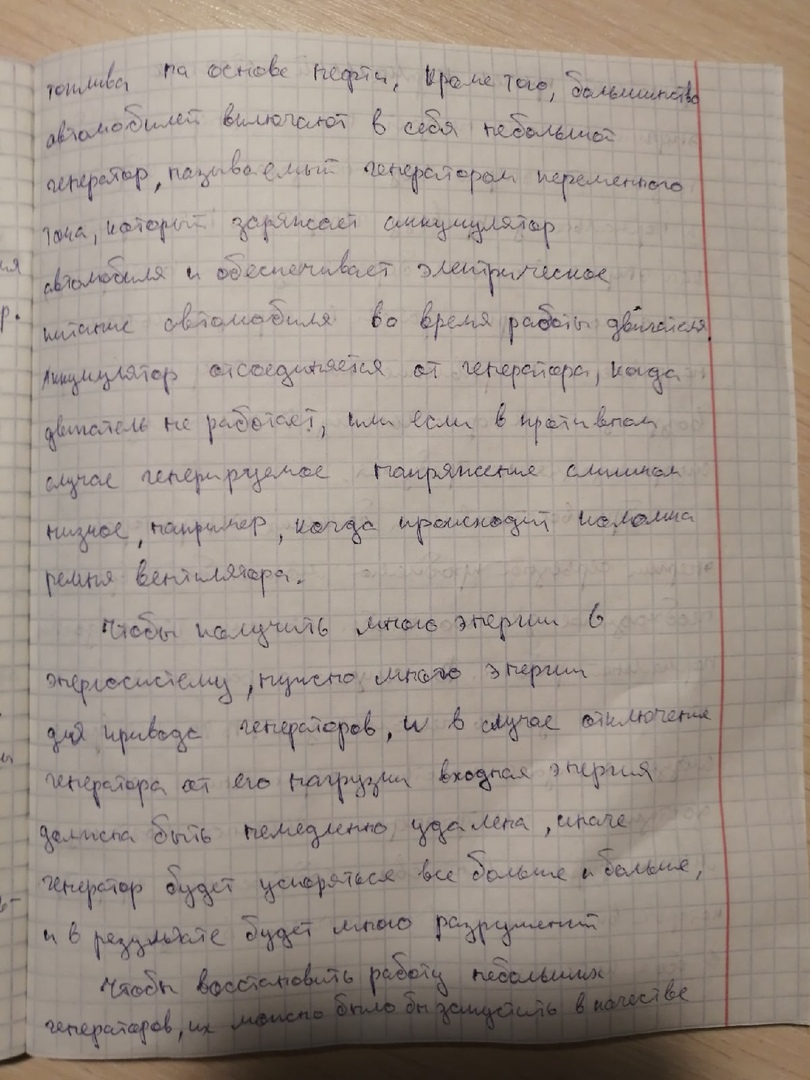 топлива на основе нефти, Кроме того, большинство
автомобилей включают в себя небольшой
генератор, называемый генератором переменного
тока, который заряжает аккумулятор
автомобиля и обеспечивает электрическое
питание автомобиля во время работы двигателя.
Аккумулятор отсоединяется от генератора, когда
двигатель не работает, или если в противном
случае генерируемое напряжение слишком
низкое, например, когда происходит поломка
ремня вентилятора.
Чтобы получить много энергии в
энергосистему, нужно много энергии
для привода генераторов, и в случае отключения
генератора от его нагрузки входная энергия
должна быть немедленно удалена, иначе
генератор будет ускоряться все больше и больше,
и в результате будет много разрушений
Чтобы восстановить работу небольших
генераторов, их можно было бы запустить в качестве
ия
р.